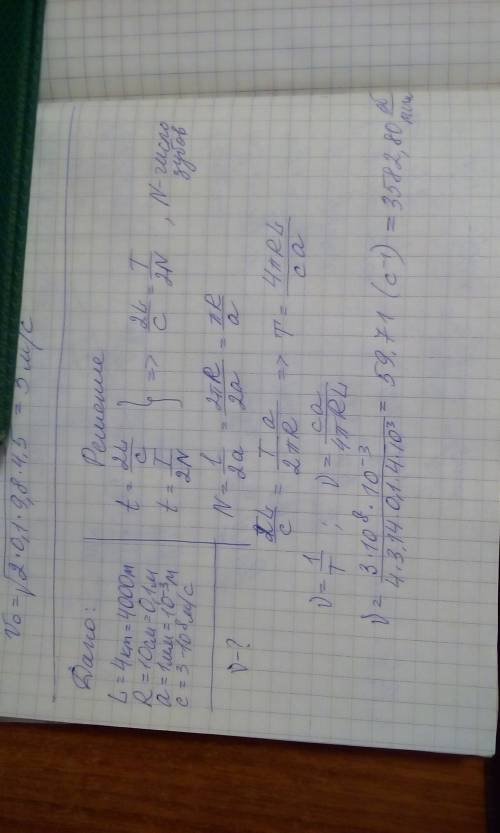 V₀ = √2·0,1·9,8·4,5 = 3 м/с
Дано:
L = 4км = 4000м
R = 10см = 0,1м
a = 1мм = 10⁻³м
c = 3·10⁸м/с
ν - ?
Решение
t = 2L/c
t = T/2N
} => 2L/c = T/2N, N - число зубов
N = l/2a = 2πR/2a = πR/a
2L/c = T a/2πR => T = 4πRL/ca
ν = 1/T ; ν = ca/4πRL
ν = 3·10⁸·10⁻³/4·3,14·0,1·4·10³ = 59,71 (с⁻¹) = 3582,80 об/мин